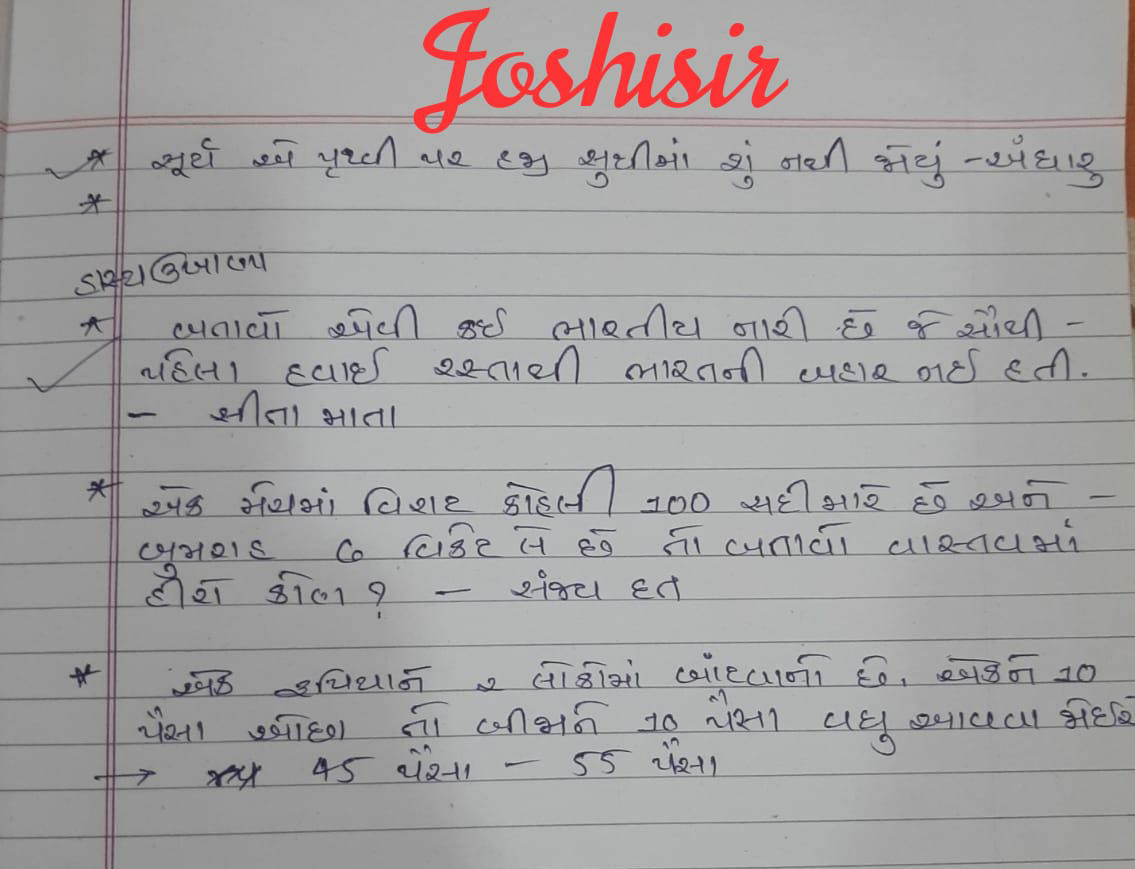 Joshisir
* સૂર્ય એ પૃથ્વી પર હજુ સુધીમાં શું નથી જોયું - અંધારુ
*
હાસ્ય ઉખાણા
* બતાવો એવી કઇ ભારતીય નારી છે જે સૌથી -
પહિલા હવાઈ રસ્તાથી ભારતની બહાર ગઈ હતી.
- સીતા માતા
* એક મેચમાં વિરાટ કોહલી 100 સદી મારે છે અને -
બુમરાહ ૯ વિકેટ લે છે તો બતાવો વાસ્તવમાં
હીરો કોણ? - સંજય દત
* એક રૂપિયાને ૨ લોકોમાં બાંટવાનો છે, એકને 10
પૈસા ઓછા તો બીજાને 10 પૈસા વધુ આવવા જોઈએ
→ 45 પૈસા - 55 પૈસા